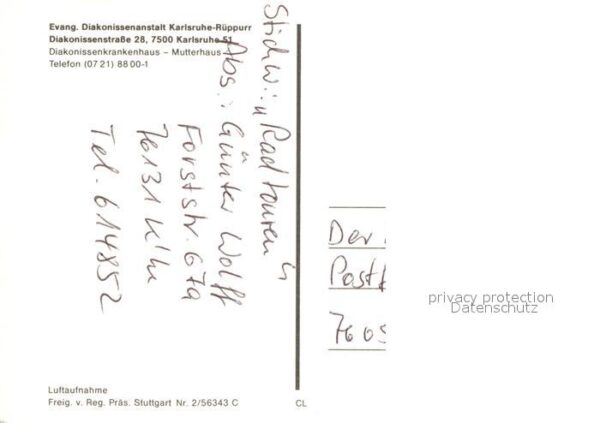 Evang. Diakonissenanstalt Karlsruhe-Rüppurr
Diakonissenstraße 28, 7500 Karlsruhe 51
Diakonissenkrankenhaus – Mutterhaus –
Telefon (07 21) 88 00-1
Stichw.: "Radtouren"
Abs.: Günter Wolff
Forststr. 67a
76131 K'he
Tel. 614852
Der
Post
7605
privacy protection
Datenschutz
Luftaufnahme
Freig. v. Reg. Präs. Stuttgart Nr. 2/56343 C
CL